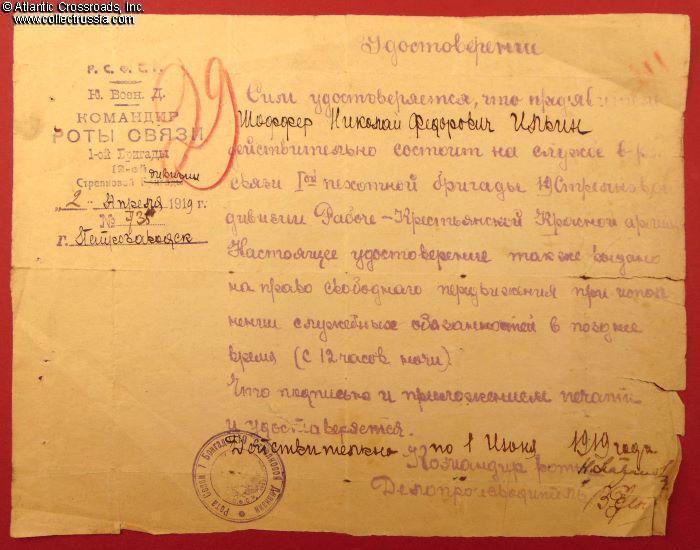 © Atlantic Crossroads, Inc.
www.collectrussia.com
Удостоверение
Р. С. Ф. С. Р.
Ю. Воен. Д.
КОМАНДИР
РОТЫ СВЯЗИ
1-ой Бригады
12-ой
Стрелковой дивизии
„2“ Апреля 1919 г.
№ 735
г.
29
Сим удостоверяется, что предъявитель
Шоффер Николай Федорович Ильин
действительно состоит на службе в роте
связи 1ой пехотной бригады Стрелковой
дивизии Рабоче-Крестьянской Красной армии
Настоящее удостоверение также выдано
на право свободного передвижения при испол
нении служебных обязанностей в позднее
время (с 12 часов ночи).
Что подписью и приложением печати
и удостоверяется.
Действительно по 1 Июня 1919 года
Командир роты
Делопроизводитель
Рота Связи 1 Бригады Стрелковой Дивизии